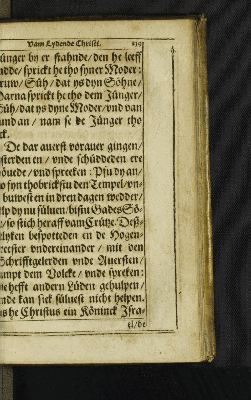 Vam Lydende Christi. 239
Jünger by er stahnde/ den he leeff
hadde/ sprickt he tho syner Moder:
Fruw/ Süh/ dat ys dyn Söhne/
Darna sprickt he tho dem Jünger/
Süh/ dat ys dyne Moder/ vnd van
stund an/ nam se de Jünger tho
sick.
De dar auerst vorauer gingen/
lasterden en/ vnde schüddeden ere
Höuede/ vnd spreken: Pfu dy an/
wo fyn thobrickstu den Tempel/ vn-
de buwest en in dren dagen wedder/
help dy nu sülven/ bistu Gades Sö-
ne/ so stich heraff vam Crütze. Deß-
gelyken bespotteden en de Hogen-
preester vndereinander/ mit den
Schrifftgelerden vnde Auersten/
sampt dem Volcke/ vnde spreken:
He hefft andern Lüden gehulpen/
vnde kan sick sülvest nicht helpen.
Js he Christus ein Köninck Jsra-
el/ de